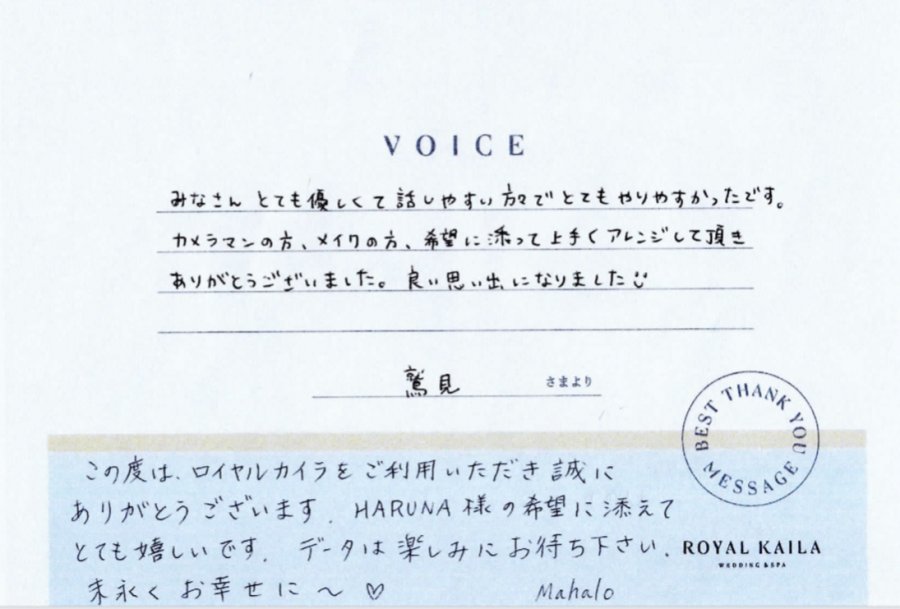 VOICE
みなさん とても優しくて話しやすい方々でとてもやりやすかったです。
カメラマンの方、メイクの方、希望に添って上手くアレンジして頂き
ありがとうございました。良い思い出になりました
鷲見 さまより
BEST THANK YOU MESSAGE
この度は、ロイヤルカイラをご利用いただき誠に
ありがとうございます. HARUNA様の希望に添えて
とても嬉しいです. データは楽しみにお待ち下さい.
末永くお幸せに〜♡ Mahalo
ROYAL KAILA
WEDDING & SPA